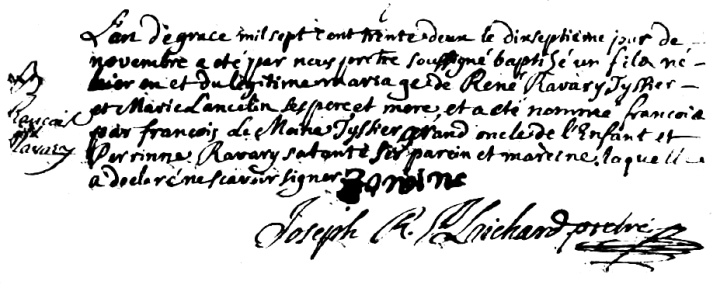 L'an de grace mil sept cent trente deux le dixseptieme jour de
novembre a eté par nous prestre soussigné baptisé un fils né
hier en et du legitime mariage de René Ravary Tyssier
et Marie Lancelin ses pere et mere et a eté nommé francois
par francois Le Moine Tyssier grand oncle de l'Enfant et
Perrinne Ravary sa tante ses parein et mareine laquelle
a declaré ne scavoir signer
francois
Ravary
Joseph R. Richard prestre